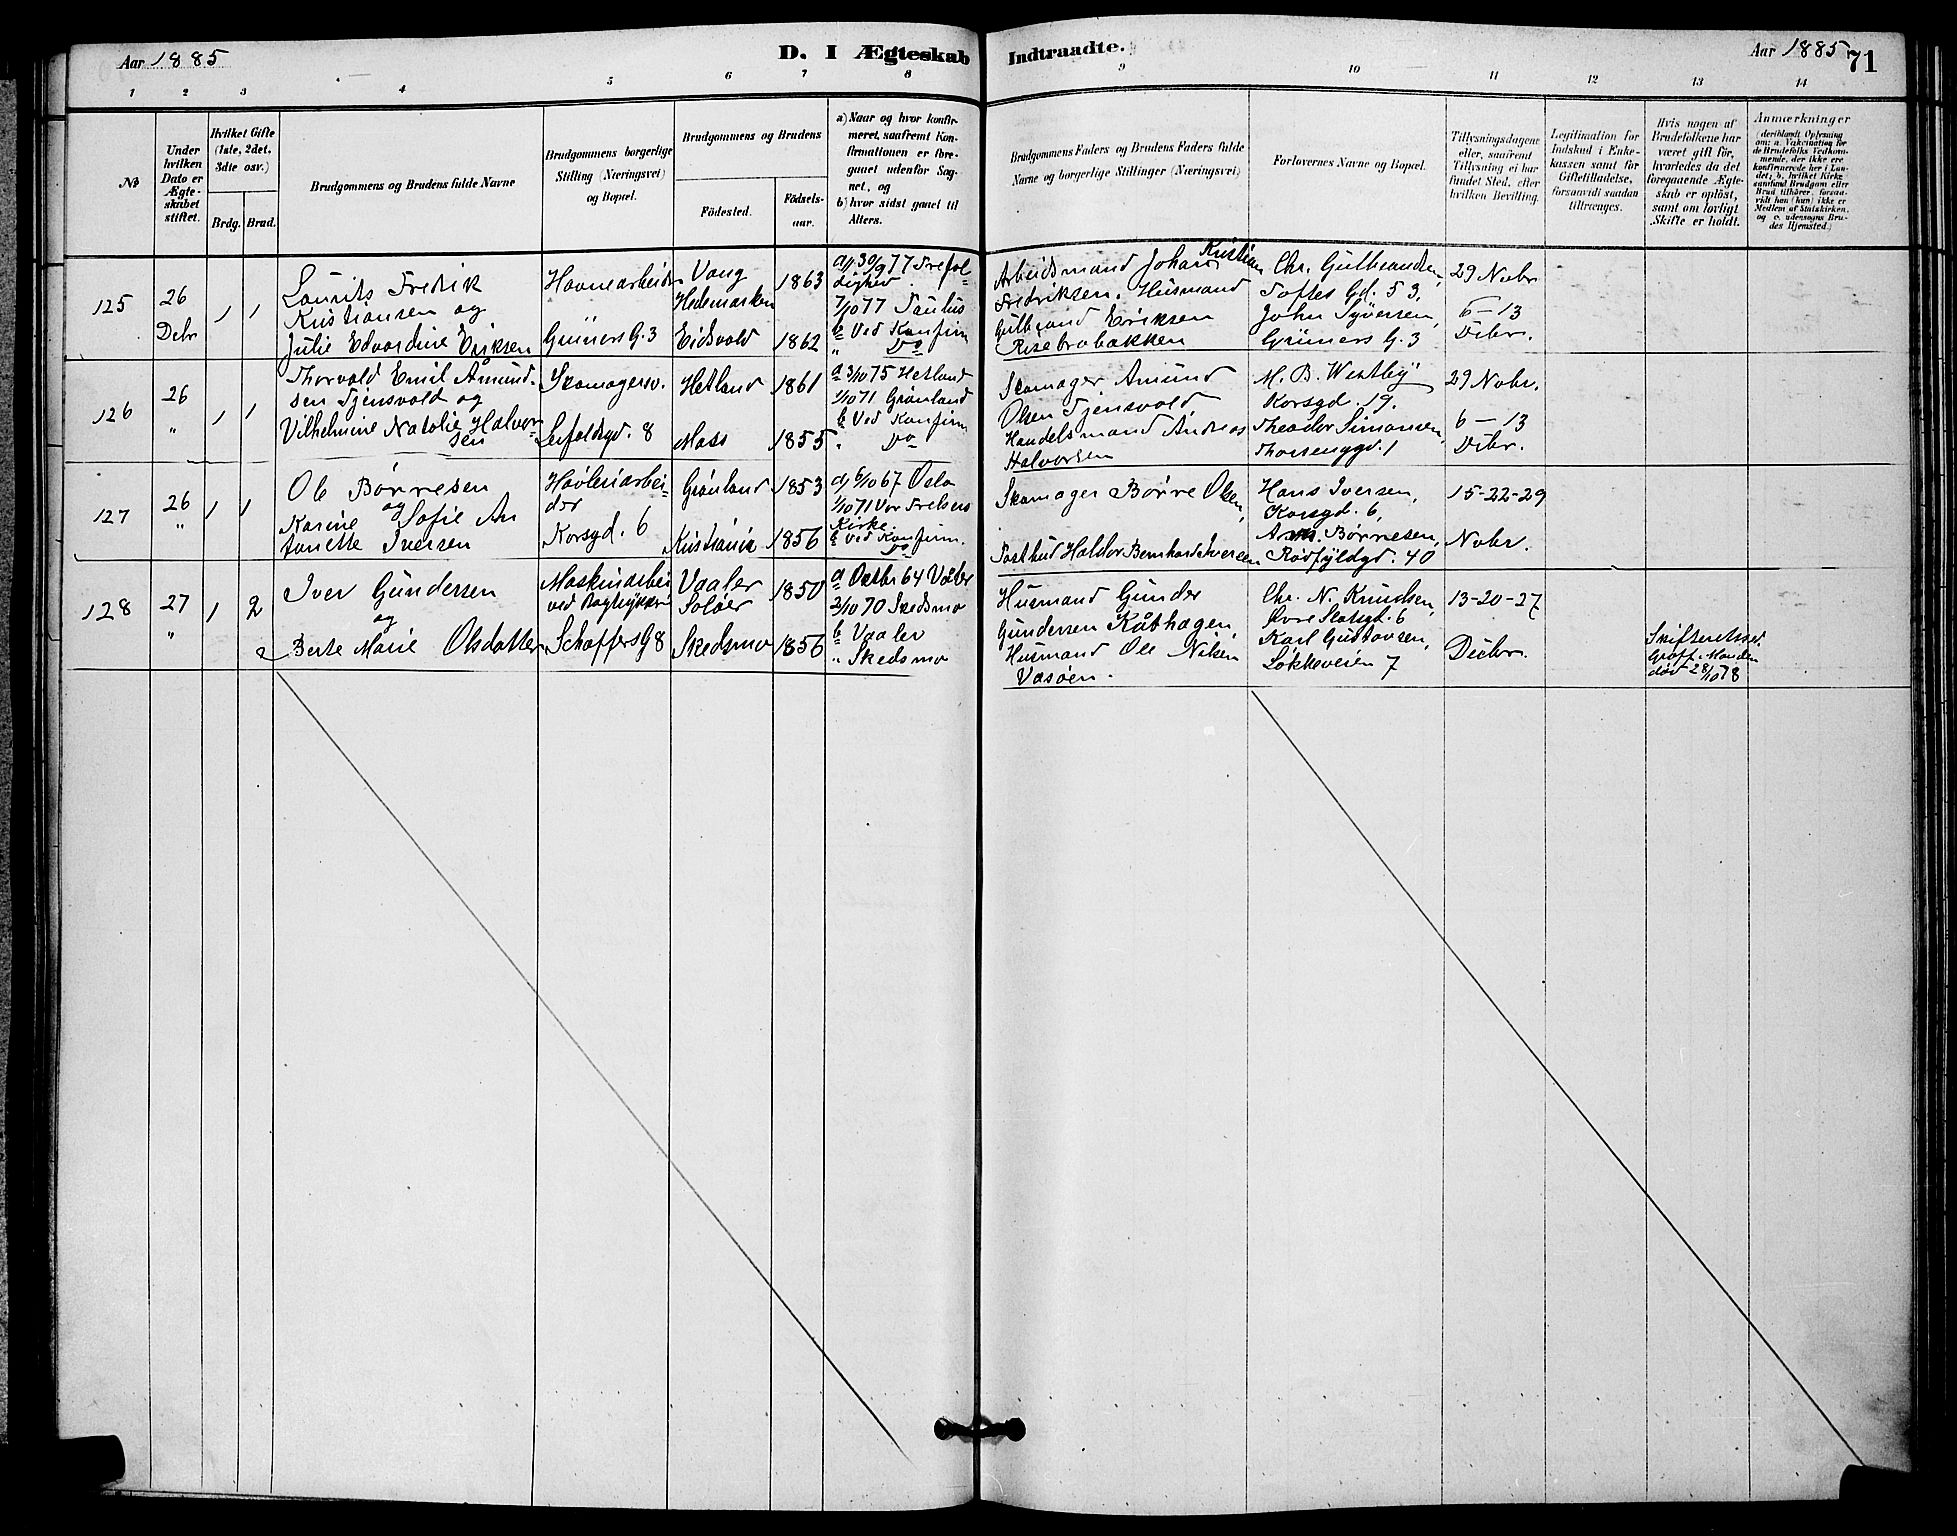 Aar 1885
D. I Ægteskab Indtraadte.
Aar 1885
71
1 2 3 4 5 6 7 8 9 10 11 12 13 14
№
Under
hvilken
Dato er
Ægte-
skabet
stiftet.
Hvilket Gifte
(1ste, 2det,
3die osv.)
Brdg. Brud.
Brudgommens og Brudens fulde Navne
Brudgommens borgerlige
Stilling (Næringsvei)
og Bopæl.
Brudgommens og Brudens
Fødested.
Fødsels-
aar.
a) Naar og hvor konfir-
meret, saafremt Kon-
firmationen er fore-
gaaet udenfor Sog-
net, og
b) hvor sidst gaaet til
Alters.
Brudgommens Faders og Brudens Faders fulde
Navne og borgerlige Stillinger (Næringsvei)
Forlovernes Navne og Bopæl.
Tillysningsdagene
eller, saafremt
Tillysning ei har
fundet Sted, efter
hvilken Bevilling.
Legitimation for
Indskud i Enke-
kassen samt for
Giftetilladelse,
forsaavidt saadan
tiltrænges.
Hvis nogen af
Brudefolkene har
været gift før,
hvorledes da det
foregaaende Ægte-
skab er opløst,
samt om lovligt
Skifte er holdt.
Anmærkninger
(deriblandt Oplysning
om: a. Vakcination for
de Brudefolks Vedkom-
mende, der ikke ere
konfirmerede her i Lan-
det; b. hvilket Kirke-
samfund Brudgom eller
Brud tilhører, forsaa-
vidt han (hun) ikke er
Medlem af Statskirken,
og c. udensogns Bru-
des Hjemsted.)
125
26
Debr
1 1
Laurits Fredrik
Kristiansen og
Julie Edvardine Eriksen
Havnearbeider
Grüners G. 3
Vang
Hedemarken
Eidsvold
1863
1862
a) 30/9 77 Trefol-
dighed
7/10 77 Paulus
b Ved Konfirm
" Do
Arbeidsmand Johan Kristian
Fredriksen. Husmand
Gulbrand Eriksen
Risebrobakken
Chr. Gulbrandsen,
Toftes Gd. 53,
John Syversen,
Grüners G. 3
29 Nobr
6-13
Debr.
126
26
"
1 1
Thorvald Emil Amund-
sen Tjensvold og
Vilhelmine Natalie Halvor-
sen
Skomagersv.
Leifoldsgd. 8
Hetland
Moss
1861
1855
a 3/10 75 Hetland
1/10 71 Grønland
b Ved Konfirm
" Do
Skomager Amund
Olsen Tjensvold
Handelsmand Andreas
Halvorsen
M. B. Westby
Korsgd. 19.
Theodor Simonsen,
Thorsenggd. 1
29 Nobr.
6-13
Debr.
127
26
"
1 1
Ole Børresen
og
Karine Sofie An
tonette Iversen
Høvleriarbei-
der
Korsgd. 6
Grønland
Kristiania
1853
1856
a) 6/10 67 Oslo
1/10 71 Vor Frelsers
Kirke.
b ved Konfirm.
Do
Skomager Børre Olsen,
Postbud Haldor Bernhard Iversen
Hans Iversen,
Korsgd. 6,
Børresen,
Rødfyldgd. 40
15-22-29
Nobr.
128
27
"
1 2
Iver Gundersen
og
Berte Marie Olsdatter
Maskinarbei
ved Bogtrykkeri
Schaffers G 8
Vaaler
Soløer
Skedsmo
1850
1856
a Octbr 64 Våler
2/10 70 Skedsmo
b Vaaler
" Skedsmo
Husmand Gunder
Gundersen Kåthagen,
Husmand Ole Nilsen
Vasøen.
Chr. N. Knudsen,
Øvre Slotsgd. 6
Karl Gustavsen,
Løkkeveien 7
13-20-27
Decbr.
Skifteattest
Manden
død 28/10 78